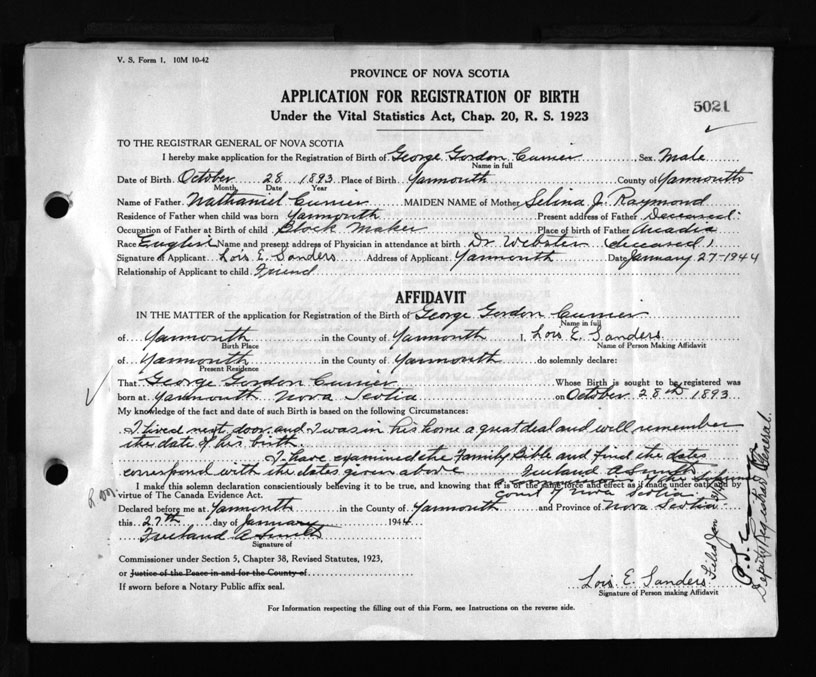 V. S. Form 1. 10M 10-42
PROVINCE OF NOVA SCOTIA
APPLICATION FOR REGISTRATION OF BIRTH
5021
Under the Vital Statistics Act, Chap. 20, R. S. 1923
TO THE REGISTRAR GENERAL OF NOVA SCOTIA
I hereby make application for the Registration of Birth of George Gordon Currier Sex Male
Name in full
Date of Birth October 28 1893 Place of Birth Yarmouth County of Yarmouth
Month Date Year
Name of Father Nathaniel Currier MAIDEN NAME of Mother Selina J. Raymond
Residence of Father when child was born Yarmouth Present address of Father Deceased
Occupation of Father at Birth of child Block Maker Place of birth of Father Arcadia
Race English Name and present address of Physician in attendance at birth Dr. Webster (deceased)
Signature of Applicant Lois E. Sanders Address of Applicant Yarmouth Date January 27-1944
Relationship of Applicant to child Friend
AFFIDAVIT
IN THE MATTER of the application for Registration of the Birth of George Gordon Currier
Name in full
of Yarmouth in the County of Yarmouth I, Lois E. Sanders
Birth Place Name of Person Making Affidavit
of Yarmouth in the County of Yarmouth do solemnly declare:
Present Residence
That George Gordon Currier Whose Birth is sought to be registered was
born at Yarmouth Nova Scotia on October 28th 1893
My knowledge of the fact and date of such Birth is based on the following Circumstances:
I lived next door and I was in his home a great deal and will remember
the date of his birth
I have examined the Family Bible and find the dates
correspond with the dates given above Freeland A Smith
a Commissioner of the Supreme
I make this solemn declaration conscientiously believing it to be true, and knowing that it is of the same force and effect as if made under oath and by
Court of Nova Scotia
virtue of The Canada Evidence Act.
Declared before me at Yarmouth in the County of Yarmouth and Province of Nova Scotia
this 27th day of January 1944
Freeland A Smith
Signature of
Commissioner under Section 5, Chapter 38, Revised Statutes, 1923,
or Justice of the Peace in and for the County of
If sworn before a Notary Public affix seal.
Lois E. Sanders
Signature of Person making Affidavit
For Information respecting the filling out of this Form, see Instructions on the reverse side.
Filed Jan
Deputy Registrar General.